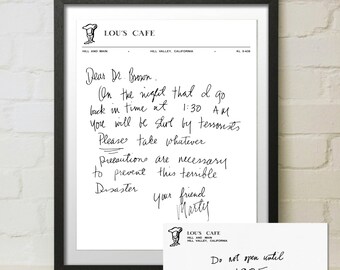 LOU'S CAFE
HILL AND MAIN HILL VALLEY, CALIFORNIA
Dear Dr. Brown,
On the night that I go
back in time at 1:30 AM
you will be shot by terrorists
Please take whatever
precautions are necessary
to prevent this terrible
Disaster
Your friend
Marty
LOU'S CAFE
HILL AND MAIN
HILL VALLEY, CALIFORNIA
Do not open until
1985